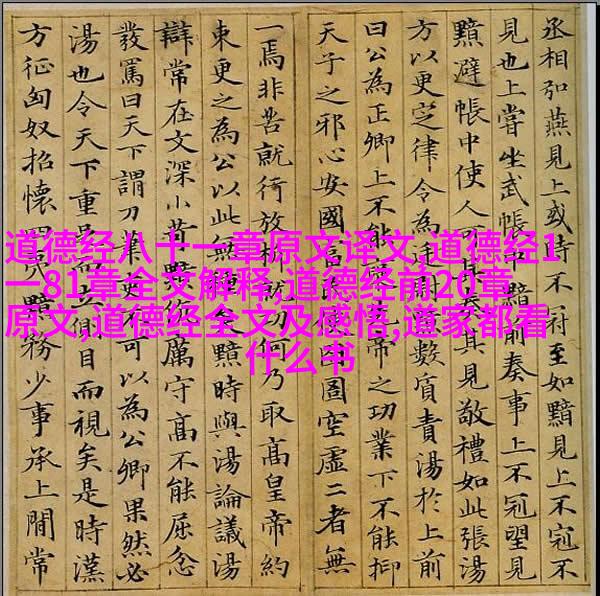 道德经八十一章原文译文,道德经1
一81章全文解释,道德经前20章
原文,道德经全文及感悟,道家都看
什么书
丞相弘燕見上或時不冠至如黯見上不冠不
見也上嘗坐武帳中黯前奏事上不冠望見
黯避帳中使人可其奏其見敬禮如此張湯
方以更定律令為廷尉黯數質責湯於上前
曰公為正卿上不能褒先帝之功業下不能抑
天子之邪心安國富民使囹圄空虛二者無
一焉非苦就行放析就功何乃取高皇帝約
束更之為公以此無種矣黯時與湯論議湯
辯常在文深小苛黯伉厲守高不能屈忿
發罵曰天下謂刀筆吏不可以為公卿果然必
湯也令天下重足而立側目而視矣是時漢
方征匈奴招懷四夷黯務少事承上間常